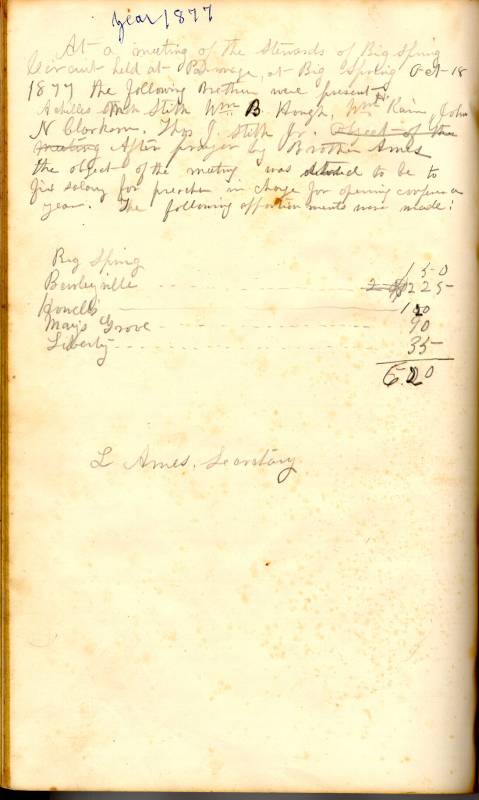 year 1877
At a meeting of the Stewards of Big Spring
Circuit held at Parsonage, at Big Spring Oct 18
1877 the following Brothers were present
Achilles Stith Wm B. Hough, Wm H. Rain, John
N Clarkson. Thos J. Stith Jr. Object of the
meeting After prayer by Brother Ames
the object of the meeting was to be to
fix salary for preacher in charge for opening conference
year. The following apportionments were made:
Big Spring 150
Bewleyville 225
Howells 120
Mays Grove 90
Liberty 35
620
L Ames. Secretary